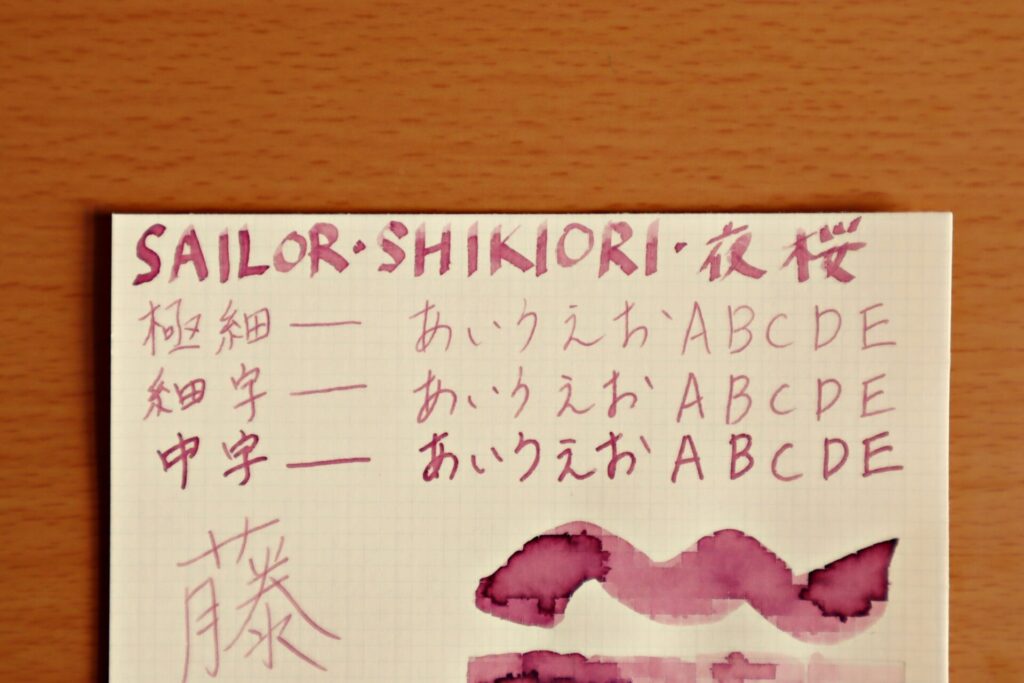 SAILOR・SHIKIORI・夜桜
極細 — あいうえお ABCDE
細字 — あいうえお ABCDE
中字 — あいうえお ABCDE
藤